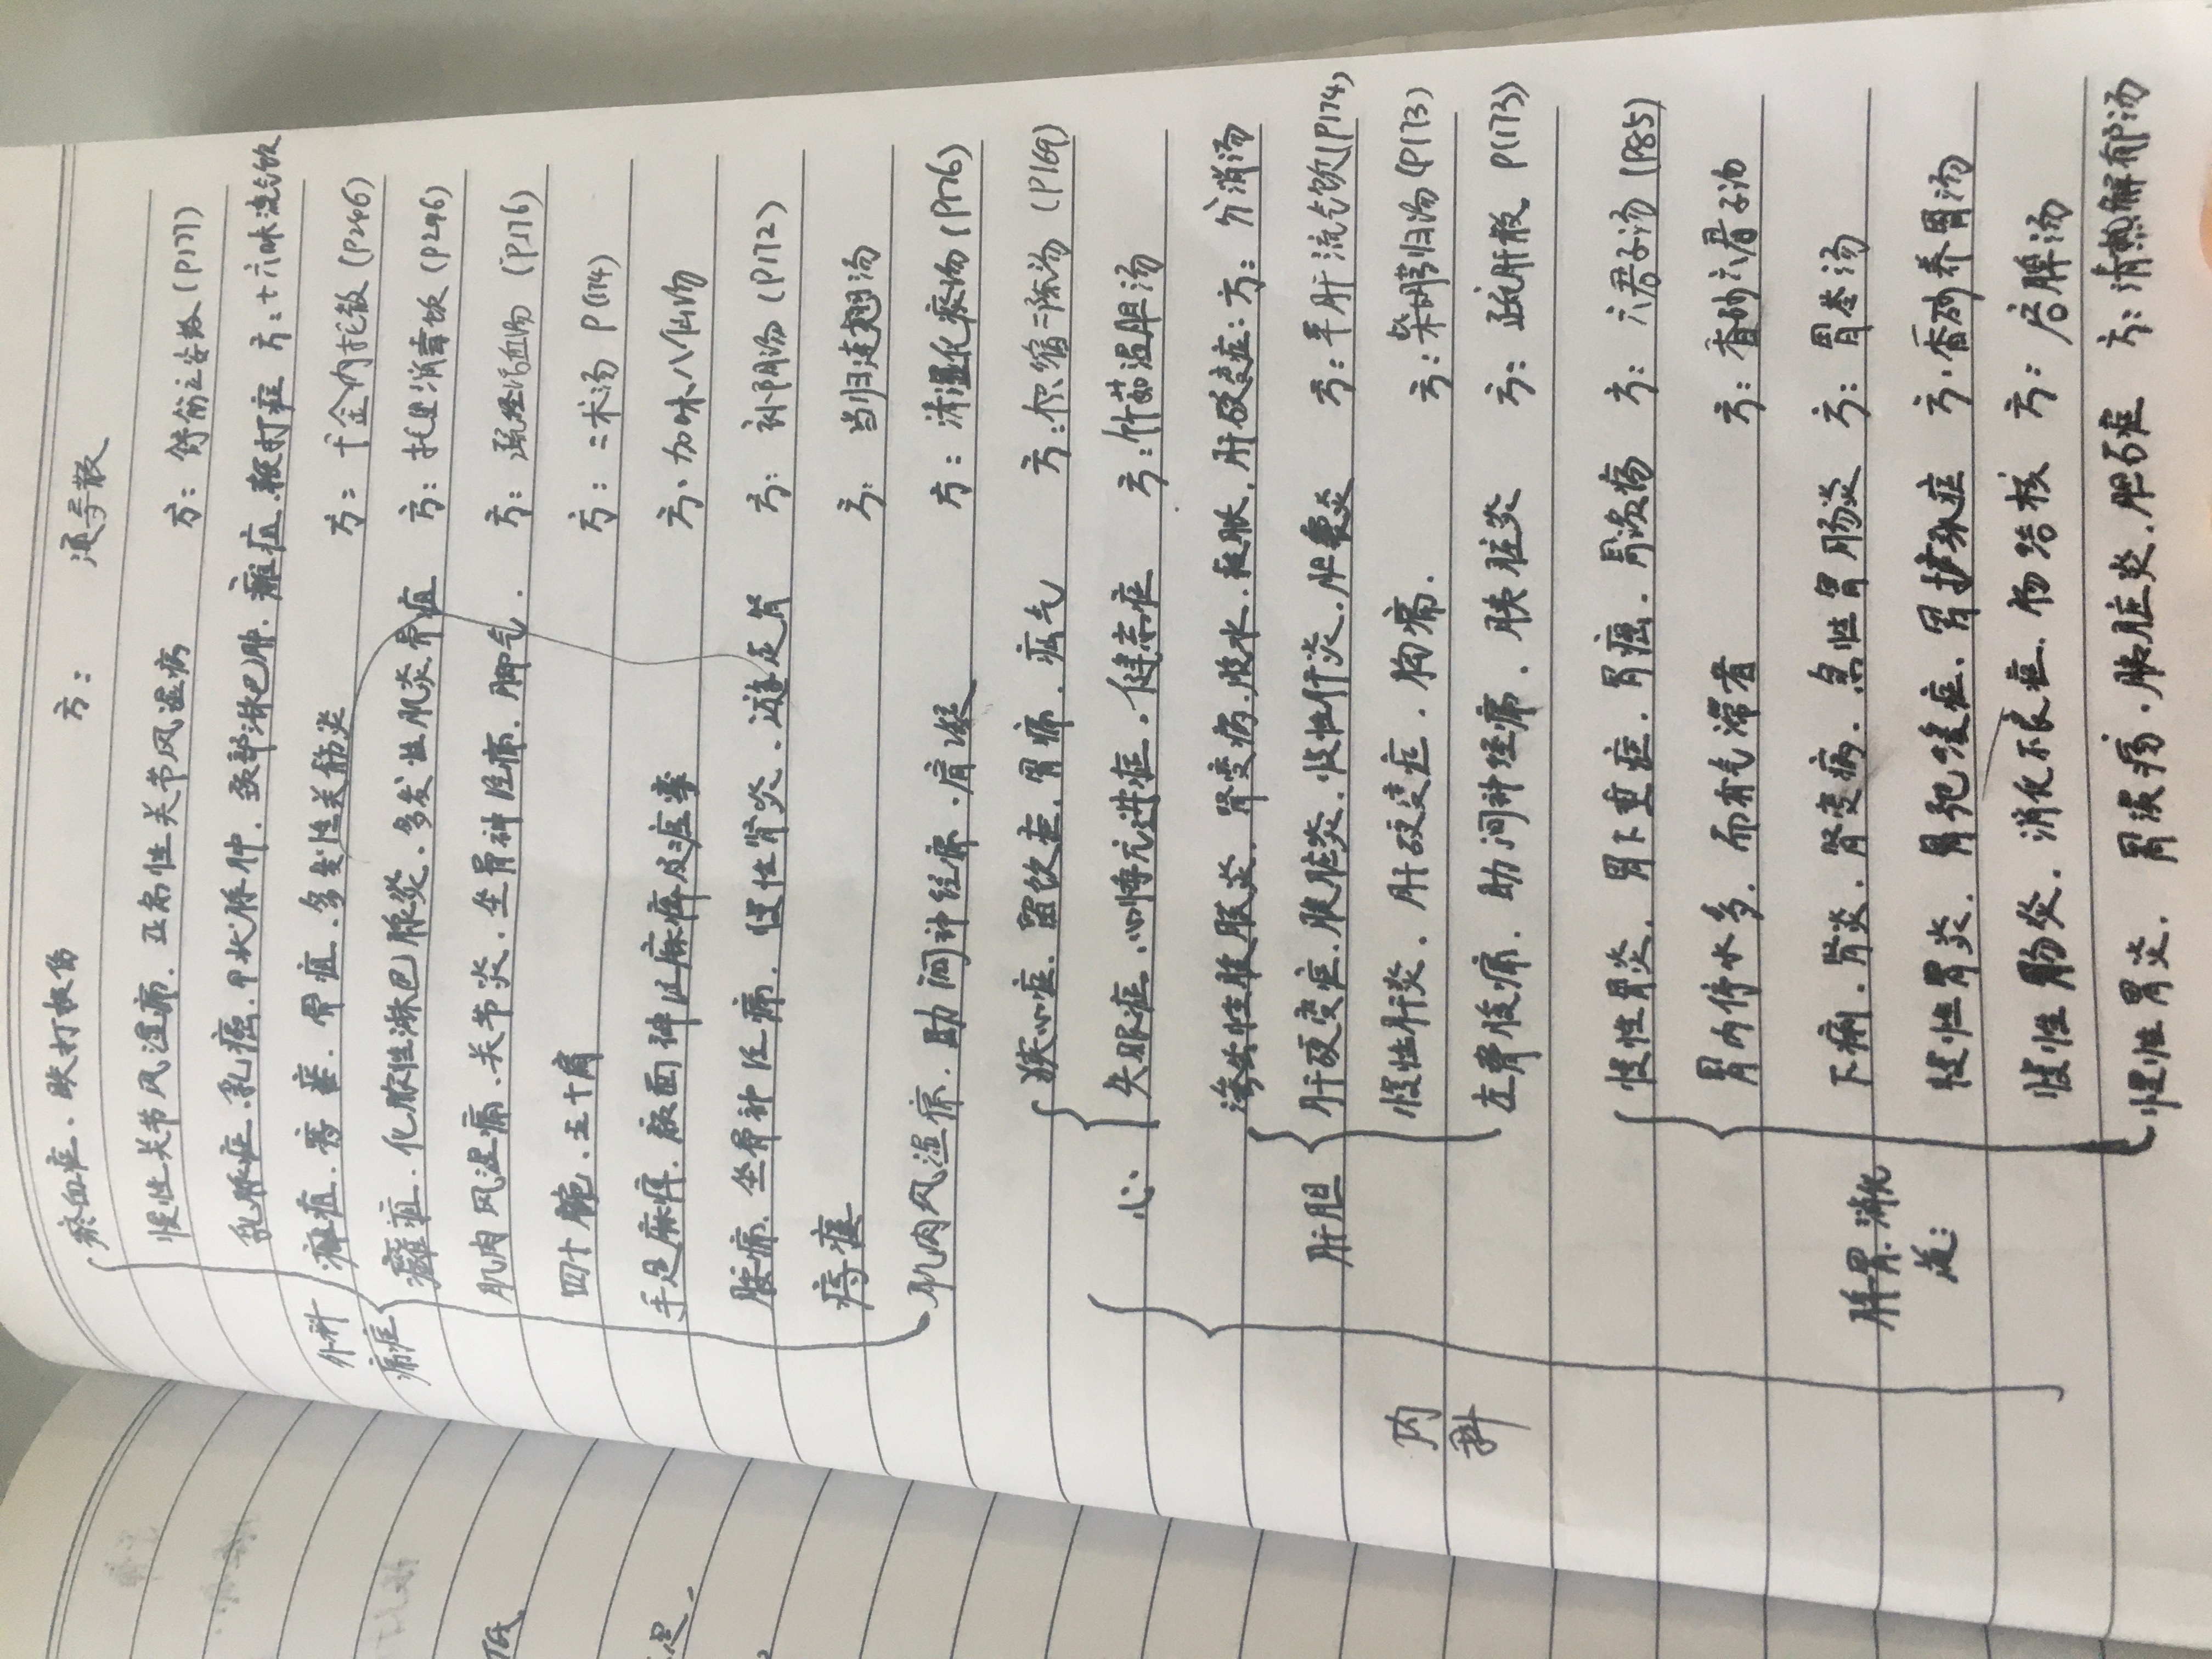 瘀血症、跌打损伤 方: 通导散
慢性关节风湿痛、亚急性关节风湿病 方: 舒筋立安散(P177)
乳腺症、乳癌、甲状腺肿、颈部淋巴肿、瘫疽、鞭打症 方: 十六味流气饮
痈疽、骨疽、多发性关节炎 方: 千金内托散(P246)
痈疽、化脓性淋巴腺炎、多发性肌炎、骨疽 方: 托里消毒饮(P246)
肌肉风湿痛、关节炎、坐骨神经痛、脚气. 方: 疏经活血汤(P176)
四十腕、五十肩 方: 二术汤 P(174)
手足麻痹、颜面神经麻痹及痉挛 方: 加味八仙汤
腰痛、坐骨神经痛、慢性肾炎、 方: 补阴汤(P172)
痔疮 方: 当归连翘汤
肌肉风湿痛、肋间神经痛、肩凝 方: 清湿化痰汤(P176)
外科
病症
痰饮症、留饮症、胃痛、疝气 方: 枳缩二陈汤(P169)
失眠症、心悸亢进症、健忘症 方: 竹茹温胆汤
心
渗出性腹膜炎、肾变病、腹水、鼓胀、肝硬变症: 方: 分消汤
肝硬变症、胰脏炎、慢性肝炎、胆囊炎 方: 平肝流气饮(P174)
慢性肝炎、肝硬变症、胸痛. 方: 柴芍归汤(P173)
左胁腹痛、肋间神经痛、胰脏炎 方: 疏肝散 P(173)
肝胆
慢性胃炎、胃下垂症、胃癌、胃溃疡 方: 六君子汤(P85)
胃内停水多、而有气滞者 方: 香砂六君子汤
下痢、肾炎、肾变病、急性胃肠炎 方: 胃苓汤
慢性胃炎、胃弛缓症、胃扩张症 方: 香砂养胃汤
慢性肠炎、消化不良症、肠结核 方: 启脾汤
慢性胃炎、胃溃疡、胰脏炎、胆石症 方: 清热解郁汤
脾胃、消化
道:
内
科
低